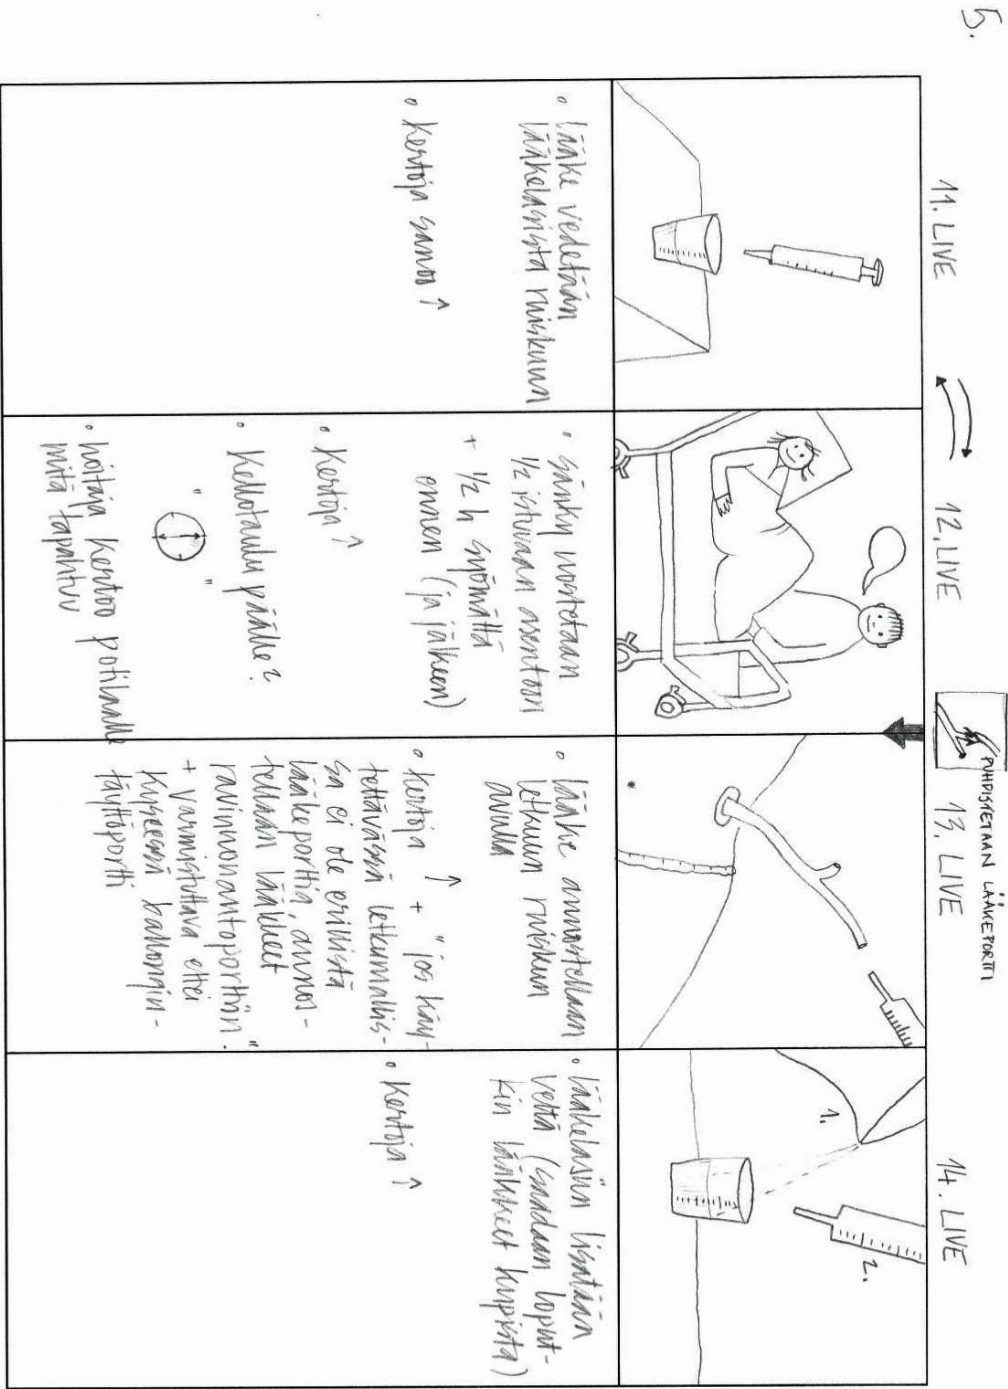 5.
11. LIVE
• lääke vedetään
lääkelasista ruiskuun
• kertoja sanoo ↑
12. LIVE
• sänky nostetaan
1/2 istuvaan asentoon
+ 1/2 h syömättä
ennen (ja jälkeen)
• kertoja ↑
• kellotaulu päälle?
" "
• hoitaja kertoo potilaalle
mitä tapahtuu
PUHDISTETAAN LÄÄKEPORTTI
13. LIVE
• lääke annostellaan
letkuun ruiskun
avulla
• kertoja ↑ + "jos käy-
tettävässä letkumallis-
sa ei ole erillistä
lääkeporttia, annos-
tellaan lääkkeet
ravinnonantoporttiin."
+ varmistuttava ettei
kyseessä ballongin-
täyttöportti
14. LIVE
1.
2.
• lääkelasiin lisätään
vettä (saadaan loput-
kin lääkkeet kupista)
• kertoja ↑